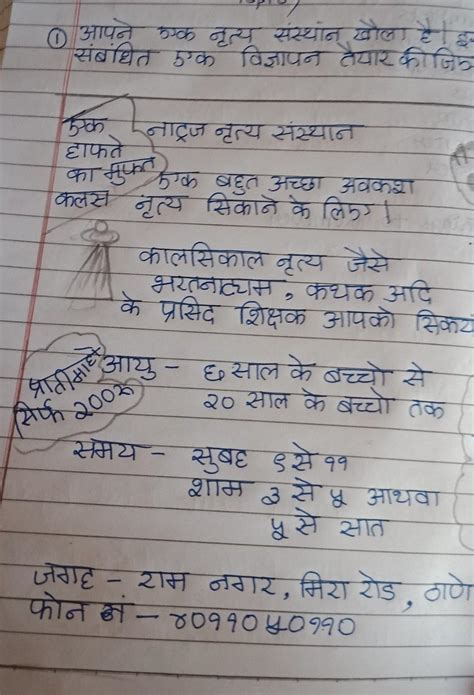 ① आपने एक नृत्य संस्थान खौला है। इ
संबंधित एक विज्ञापन तैयार कीजिए
एक
हाफते
का मुफत
कलस
नाट्रज नृत्य संस्थान
एक बहुत अच्छा अवकश
नृत्य सिकाने के लिए।
कालसिकाल नृत्य जैसे
भरतनाट्यम, कथक अदि
के प्रसिद शिक्षक आपको सिकय
प्रतीमाहे
सिर्फ २००रु
आयु - ६ साल के बच्चो से
२० साल के बच्चो तक
समय - सुबह ९ से ११
शाम ३ से ५ आथवा
५ से सात
जगह - राम नगर, मिरा रोड, ठाणे
फोन नं - ४०११०५०११०